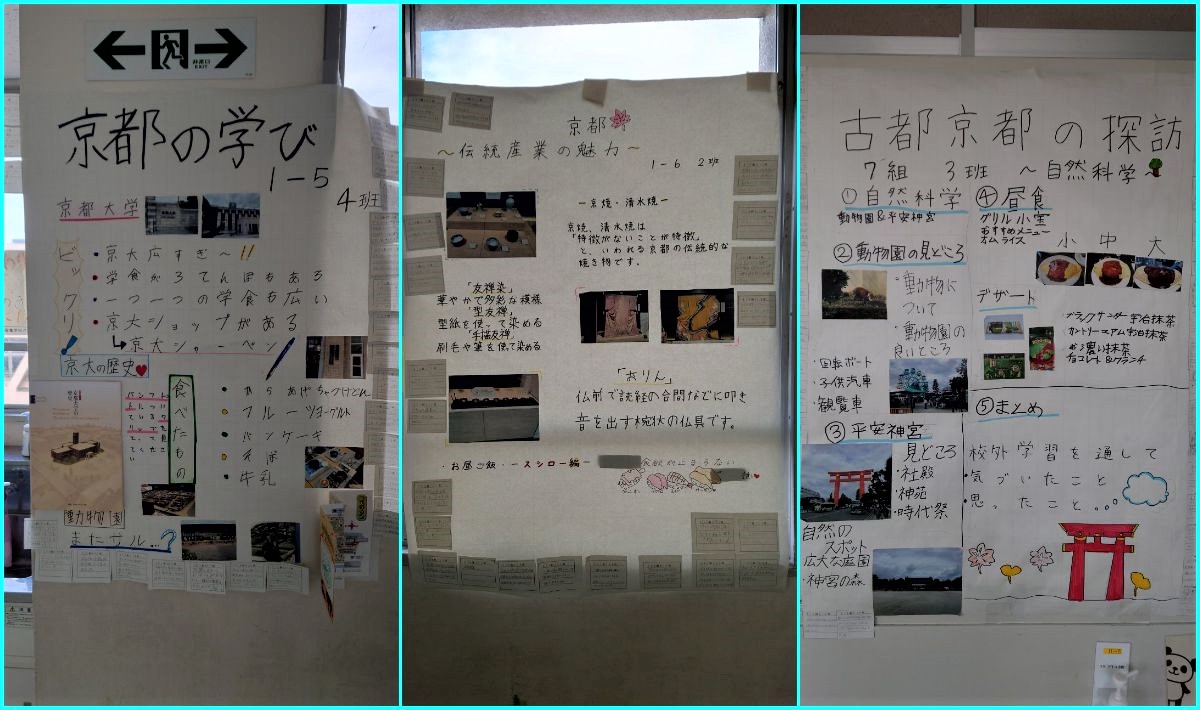 非常口
EXIT
京都の学び
1-5
4班
京都大学
ビックリ!
・京大広すぎ〜!!
・学食が3てんぽもある
・一つ一つの学食も広い
・京大ショップがある
↳京大シャーペン
京大の歴史♥
食べたもの
・からあげちゃづけどん
・フルーツヨーグルト
・パンケーキ
・牛乳
動物園
またサル...?
京都
〜伝統産業の魅力〜
1-6 2班
ー京焼・清水焼ー
京焼、清水焼は
「特徴がないことが特徴」
と、いわれる京都の伝統的な
焼き物です。
「友禅染」
華やかで多彩な模様
「型友禅」
型紙を使って染める
「手描友禅」
刷毛や筆を使て染める
「おりん」
仏前で読経の合間などに叩き
音を出す椀状の仏具です。
・お昼ご飯・ースシロー編ー
古都京都の探訪
7組 3班 〜自然科学〜
①自然科学
動物園&平安神宮
②動物園の見どころ
・動物に
ついて
・動物園の
良いところ
・回転ボート
・子供汽車
・観覧車
③平安神宮
見どころ
・社殿
・神苑
・時代祭
自然の
スポット
広大な庭園
・神宮の森
④昼食
グリル小宝
おすすめメニュー
オムライス
小 中 大
デザート
・ブラックサンダー宇治抹茶
・カントリーマアム宇治抹茶
⑤まとめ
校外学習を通して
・気づいたこと
・思ったこと。。